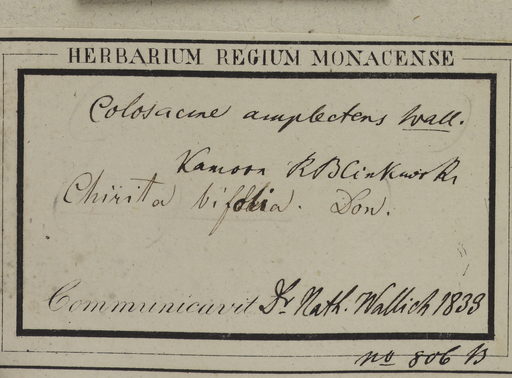 HERBARIUM REGIUM MONACENSE
Colosacme amplectens Wall.
Kamoon R Blinkwork
Chirita bifolia. Don.
Communicavit Dr. Nath. Wallich 1833
no 806 B